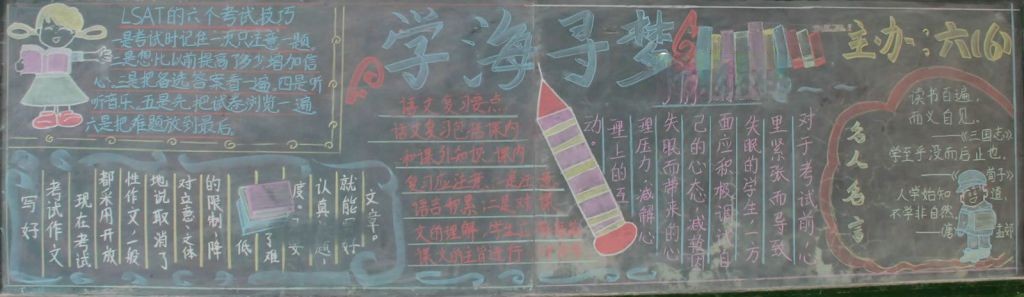 LSAT的六个考试技巧
一是考试时记住一次只注意一题、
二是想比以前提高了多少增加信
心、三是把备选答案看一遍、四是听
听音乐、五是先把试卷浏览一遍
六是把难题放到最后。
学海寻梦
主办:六(6)
语文复习要点
语文复习包括课内
和课外知识 课内
复习应注意
语言积累、二是对课
文的理解
课文的主旨进行
对于考试前,心
里紧张而导致
失眠的学生一方
面应积极调适自
己的心态、减轻因
失眠而带来的心
理压力、减解心
理上的互
动。
名人名言
读书百遍,
而义自见。
——《三国志》
学至乎没而后止也。
——《荀子》
人学始知道,
不学非自然。
——孟郊
写好
考试作文
现在考试
都采用开放
性作文、一般
地说取消了
对立意、文体
的限制、降
低
了难
度
认真
就能
好
文章。